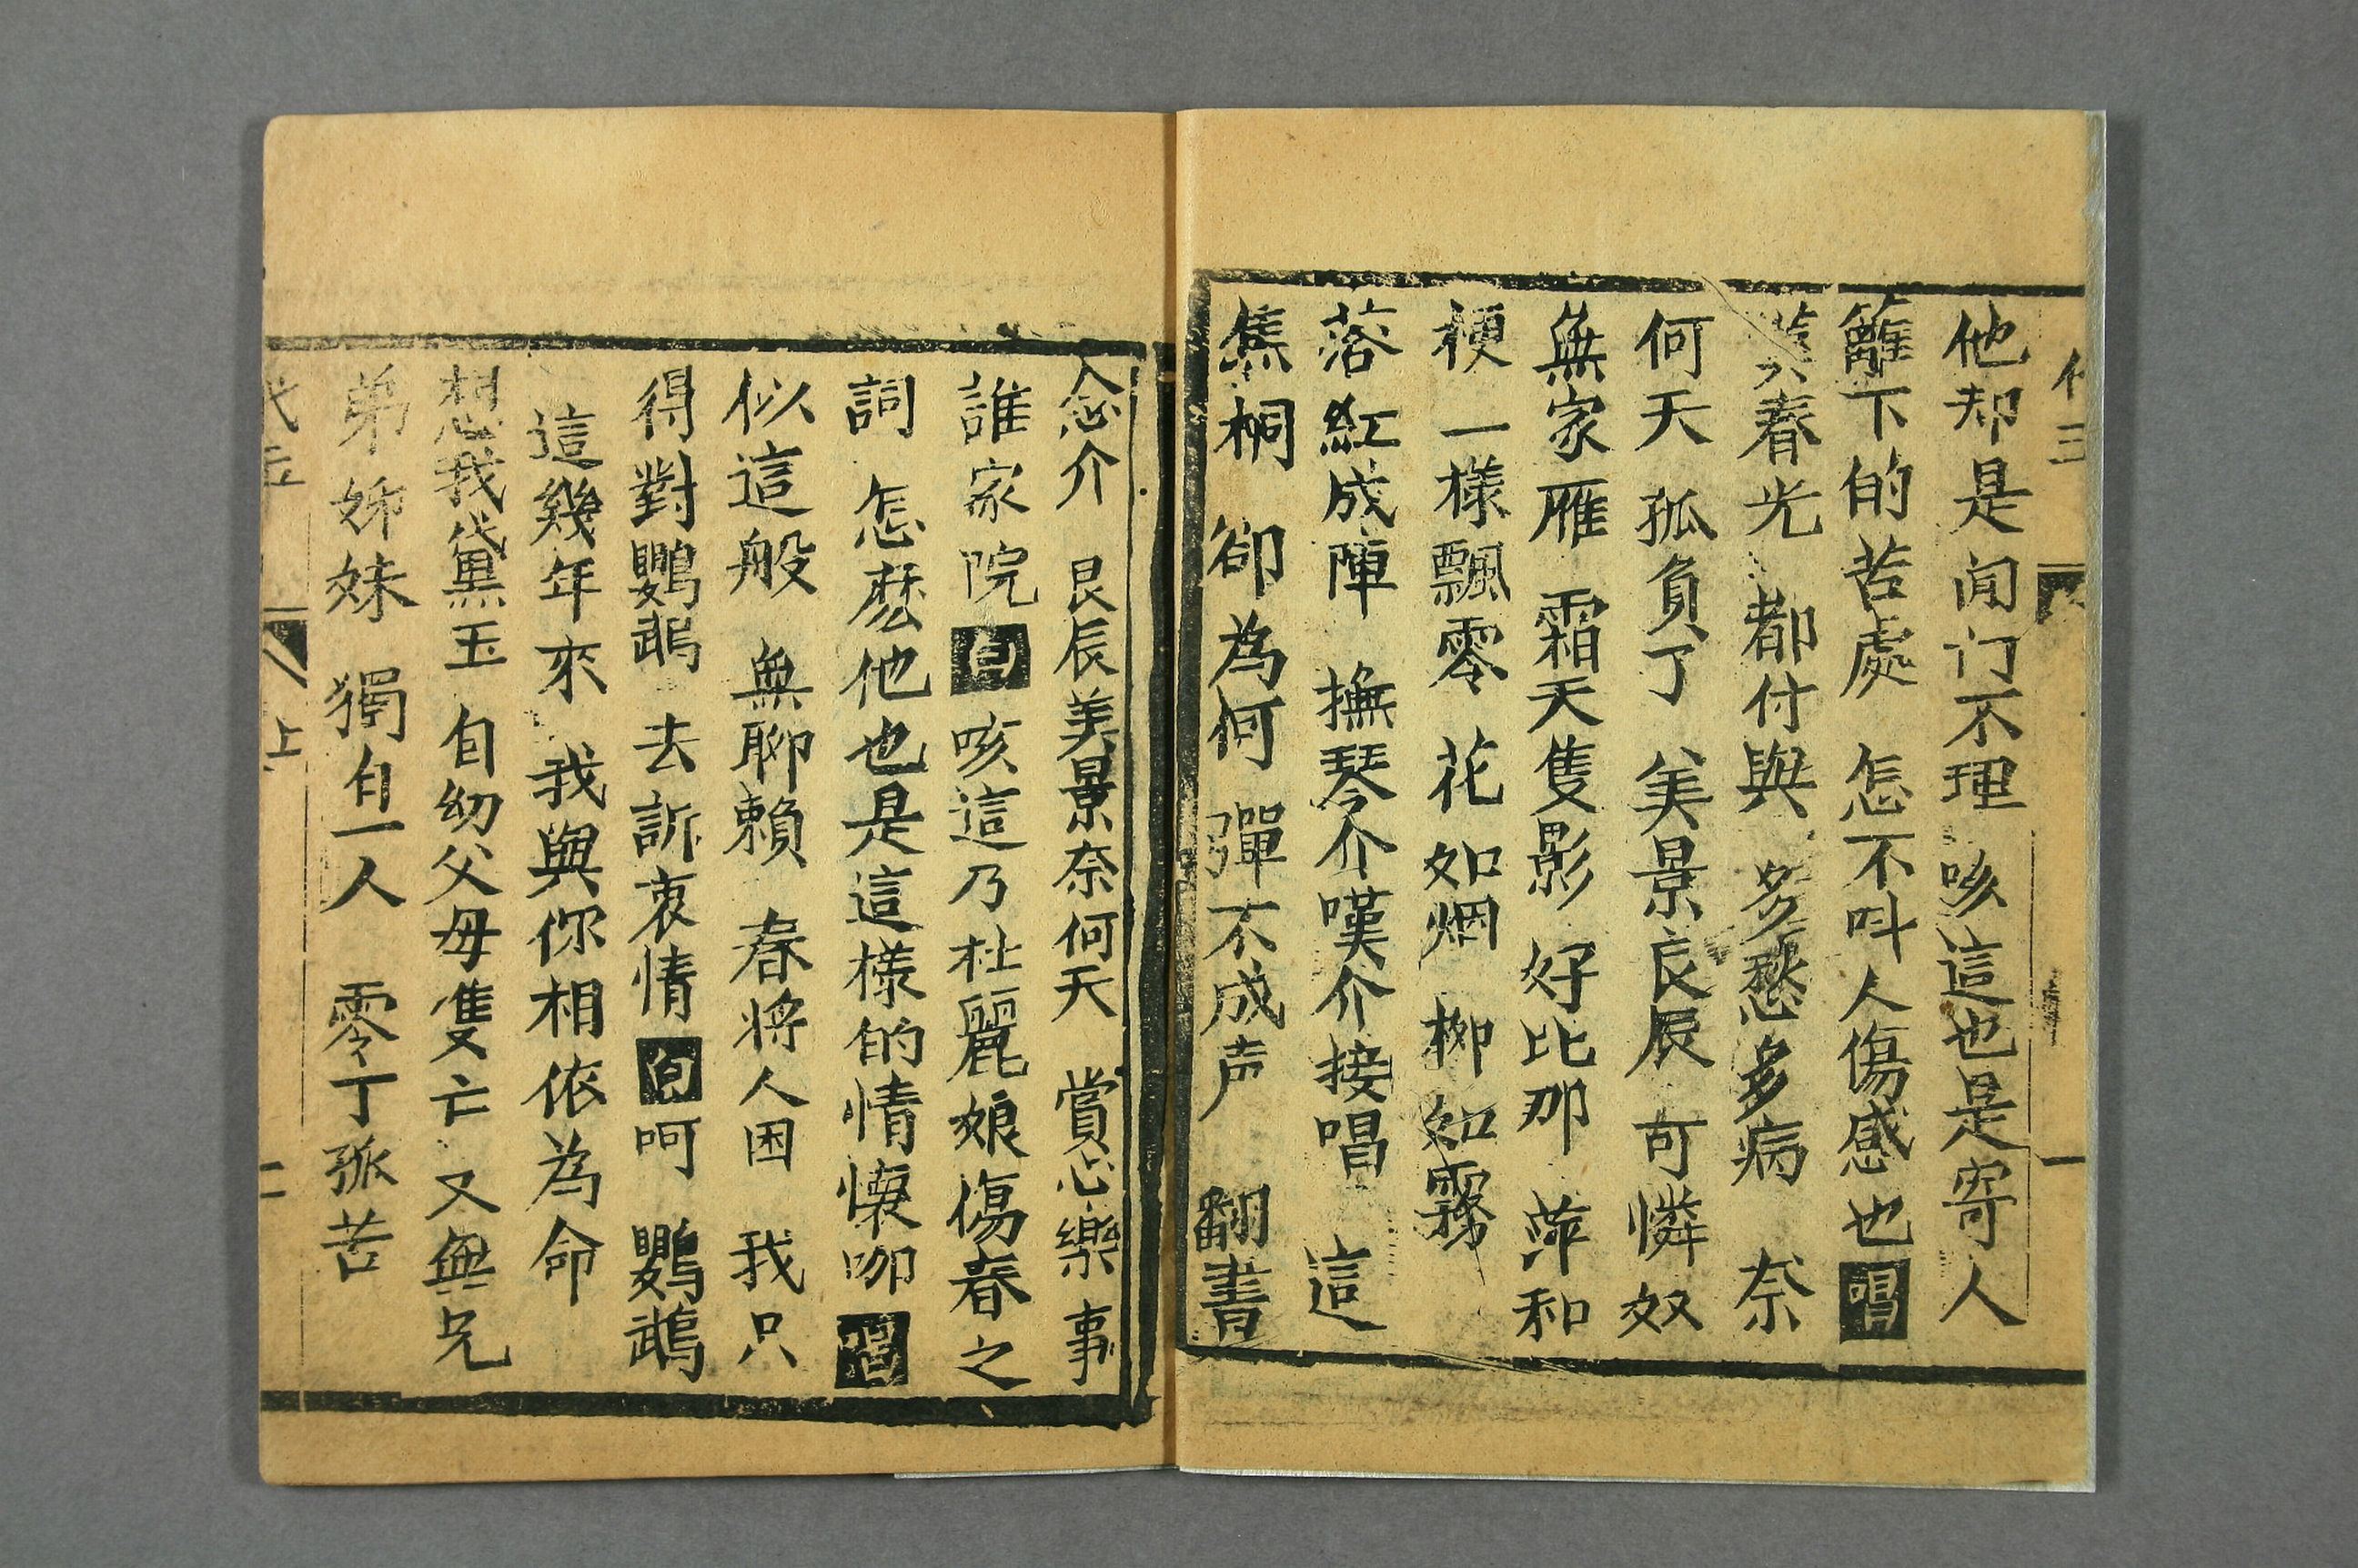 他却是闭门不理 咳這也是寄人
籬下的苦處 怎不呌人傷感也唱
春光 都付與 多愁多病 奈
何天 孤負了 美景良辰 可憐奴
無家雁 霜天隻影 好比那 萍和
梗 一樣飄零 花如烟 柳如霧
落紅成陣 撫琴介嘆介接唱 這
焦桐 卻為何 彈不成声 翻書
念介 良辰美景奈何天 賞心樂事
誰家院白咳這乃杜麗娘傷春之
詞 怎麽他也是這樣的情懷呀唱
似這般 無聊賴 春將人困 我只
得對鸚鵡 去訴衷情白呵 鸚鵡
這幾年來 我與你相依為命
想我黛玉 自幼父母雙亡 又無兄
弟姊妹 獨自一人 零丁孤苦
上
二